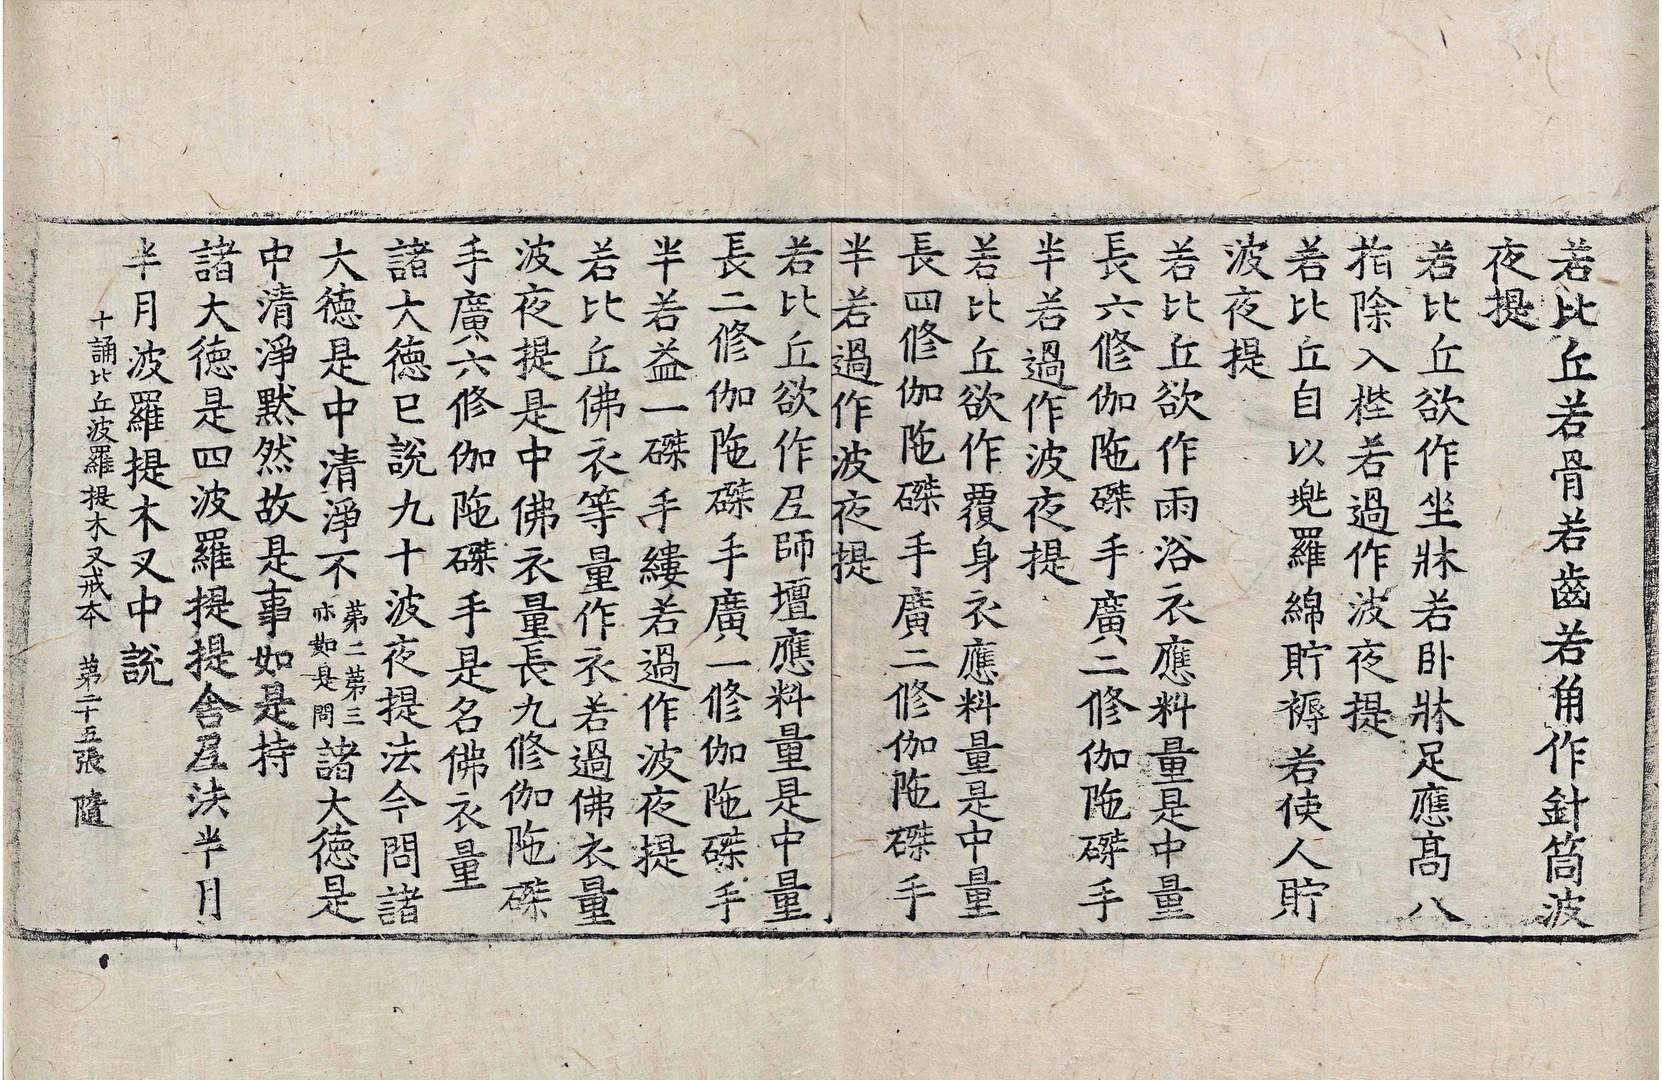 若比丘若骨若齒若角作針筒波
夜提
若比丘欲作坐牀若卧牀足應高八
指除入梐若過作波夜提
若比丘自以兠羅綿貯褥若使人貯
波夜提
若比丘欲作雨浴衣應料量是中量
長六修伽陁磔手廣二修伽陁磔手
半若過作波夜提
若比丘欲作覆身衣應料量是中量
長四修伽陁磔手廣二修伽陁磔手
半若過作波夜提
若比丘欲作𡰱師壇應料量是中量
長二修伽陁磔手廣一修伽陁磔手
半若益一磔手縷若過作波夜提
若比丘佛衣等量作衣若過佛衣量
波夜提是中佛衣量長九修伽陁磔
手廣六修伽陁磔手是名佛衣量
諸大德已說九十波夜提法今問諸
大德是中清淨不第二第三亦如是問諸大德是
中清淨默然故是事如是持
諸大德是四波羅提提舍𡰱法半月
半月波羅提木叉中說
十誦比丘波羅提木叉戒本 第二十五張 隨